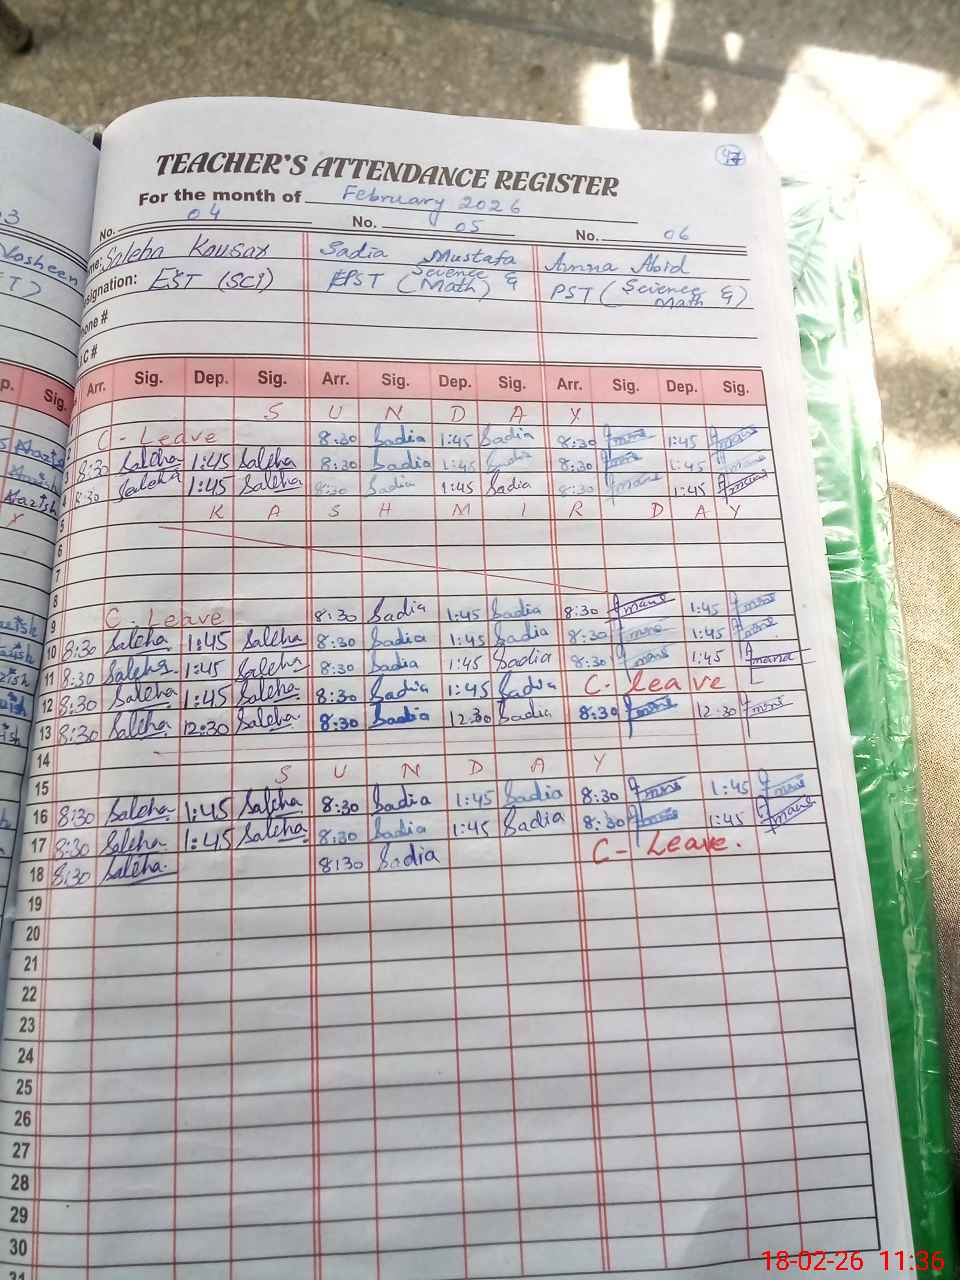 47
TEACHER'S ATTENDANCE REGISTER
For the month of February 2026
No. 04 No. 05 No. 06
Saleha Kousar Sadia Mustafa Amna Abid
signation: EST (SCI) EPST (Science & Math) PST (Science & Math)
one #
.C #
Arr. Sig. Dep. Sig. Arr. Sig. Dep. Sig. Arr. Sig. Dep. Sig.
S U N D A Y
C-Leave 8:30 Sadia 1:45 Sadia 8:30 1:45
8:30 Saleha 1:45 Saleha 8:30 Sadia 1:45 Sadia 8:30 1:45
8:30 Saleha 1:45 Saleha 8:30 Sadia 1:45 Sadia 8:30 1:45
5 K A S H M I R D A Y
6
7
8
9 C-Leave 8:30 Sadia 1:45 Sadia 8:30 1:45
10 8:30 Saleha 1:45 Saleha 8:30 Sadia 1:45 Sadia 8:30 1:45
11 8:30 Saleha 1:45 Saleha 8:30 Sadia 1:45 Sadia 8:30 1:45
12 8:30 Saleha 1:45 Saleha 8:30 Sadia 1:45 Sadia C-leave
13 8:30 Saleha 12:30 Saleha 8:30 Sadia 12:30 Sadia 8:30 12:30
14
15 S U N D A Y
16 8:30 Saleha 1:45 Saleha 8:30 Sadia 1:45 Sadia 8:30 1:45
17 8:30 Saleha 1:45 Saleha 8:30 Sadia 1:45 Sadia 8:30 1:45
18 8:30 Saleha 8:30 Sadia C-Leave.
19
20
21
22
23
24
25
26
27
28
29
30
18-02-26 11:36